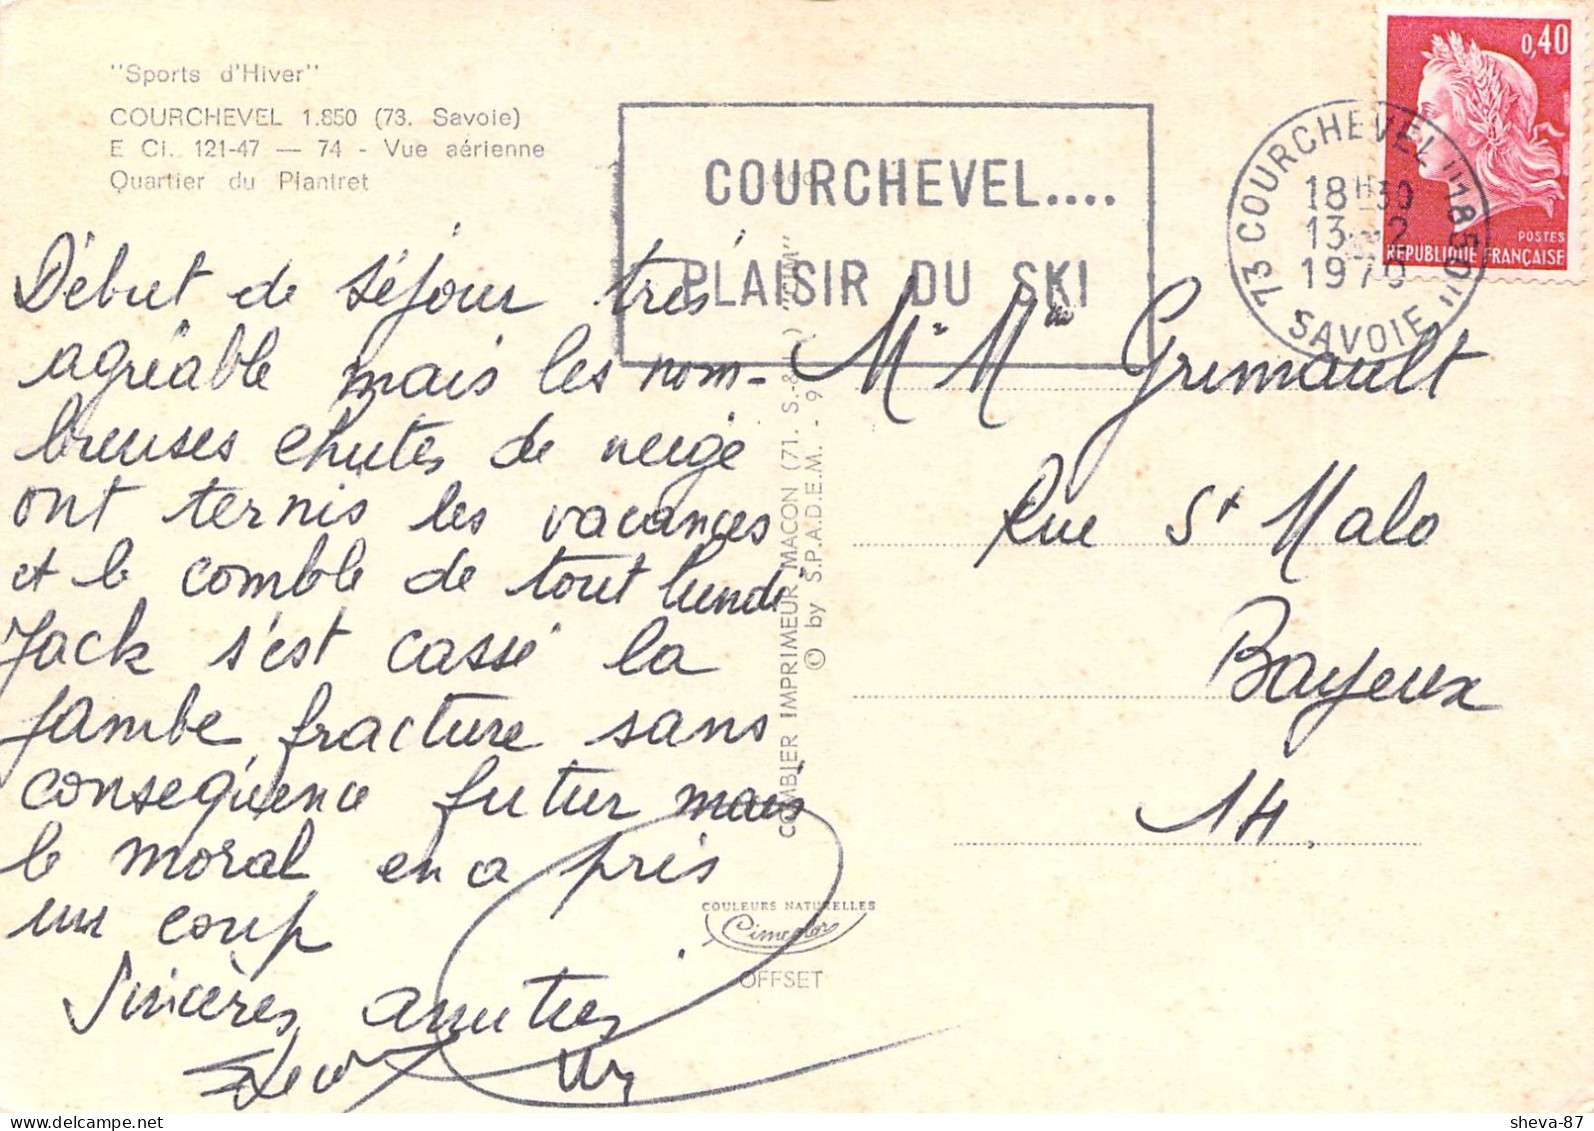 "Sports d'Hiver"
COURCHEVEL 1.850 (73. Savoie)
E Ci. 121-47 — 74 - Vue aérienne
Quartier du Plantret
COURCHEVEL....
PLAISIR DU SKI
73 COURCHEVEL "1850" SAVOIE
18H30
13-2
1970
0,40
POSTES
REPUBLIQUE FRANÇAISE
Début de séjour très
agréable mais les nom-
breuses chutes de neige
ont ternis les vacances
et le comble de tout lundi
Jack s'est cassé la
jambe fracture sans
conséquence futur mais
le moral en a pris
un coup
Sincères amitiés
Mr Mme Grimault
Rue St Malo
Bayeux
14.
COMBIER IMPRIMEUR MACON (71. S.-&-L.) "CIM"
© by S.P.A.D.E.M. - 9
COULEURS NATURELLES
Cimcolor
OFFSET
sheva-87